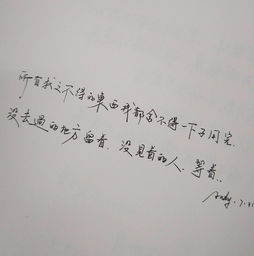 所有我之不得的东西我都舍不得一下子用完.
没去过的地方留着. 没见着的人. 等着..
Andy. 7.31